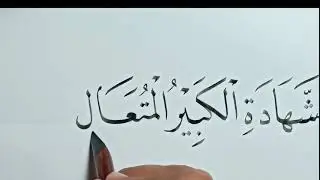 لشَّهَادَةِ الْكَبِيْرُ الْمُتَعَال